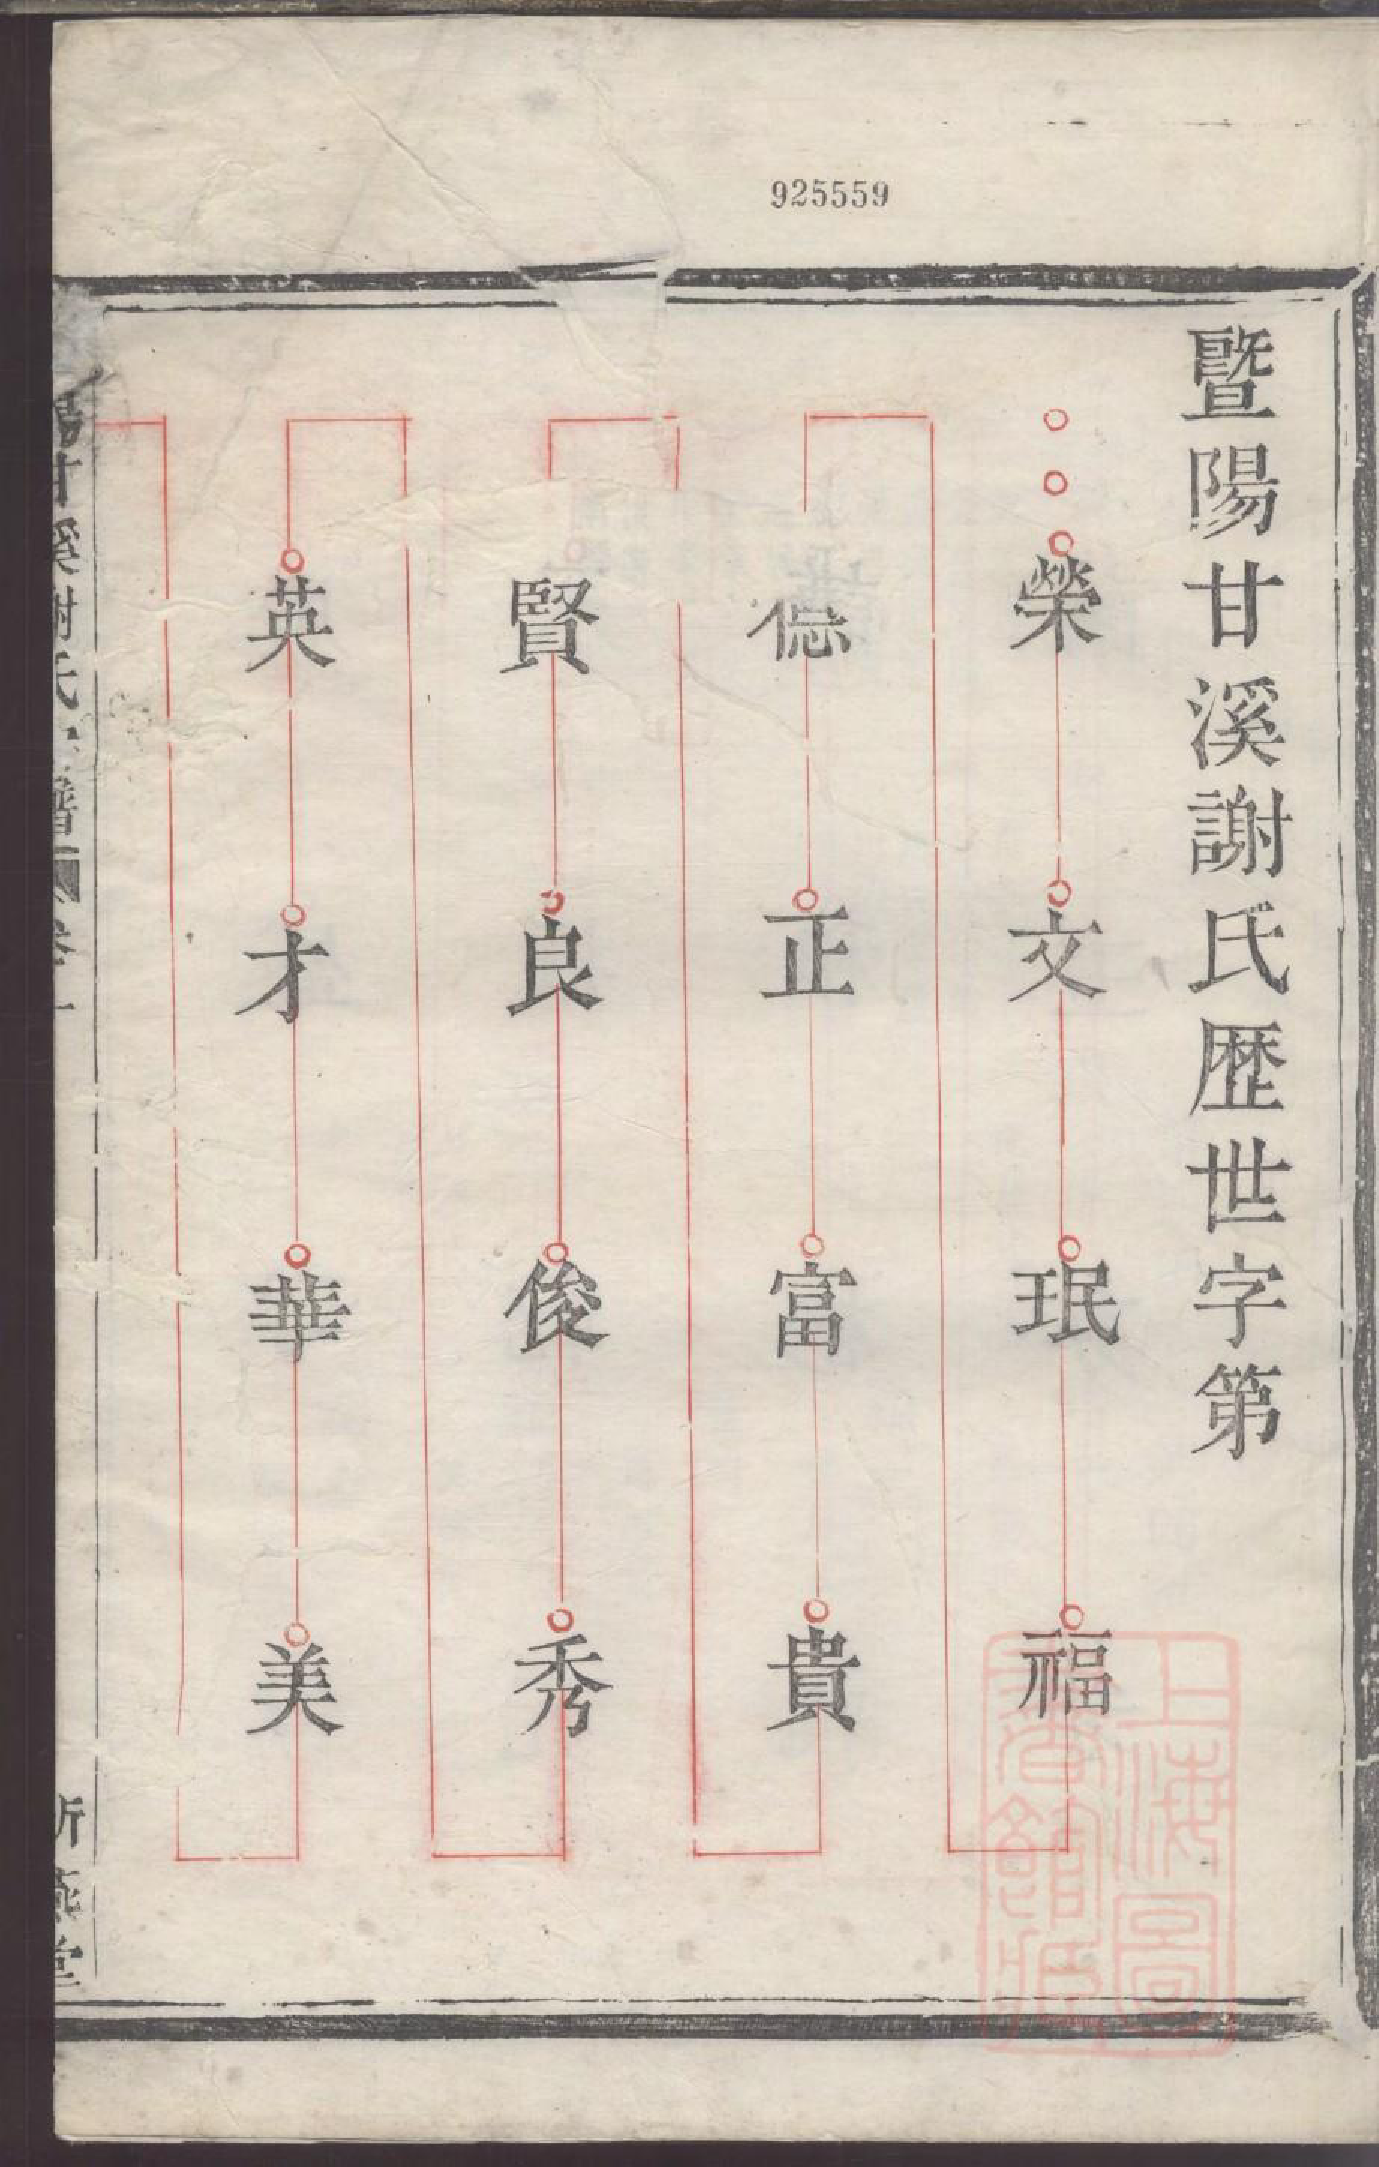 925559
暨陽甘溪謝氏歷世字第
榮 文 珉 福
正 富 貴
賢 良 俊 秀
英 才 華 美
陽甘溪謝氏宗譜 卷一
燕堂
上海圖書館藏